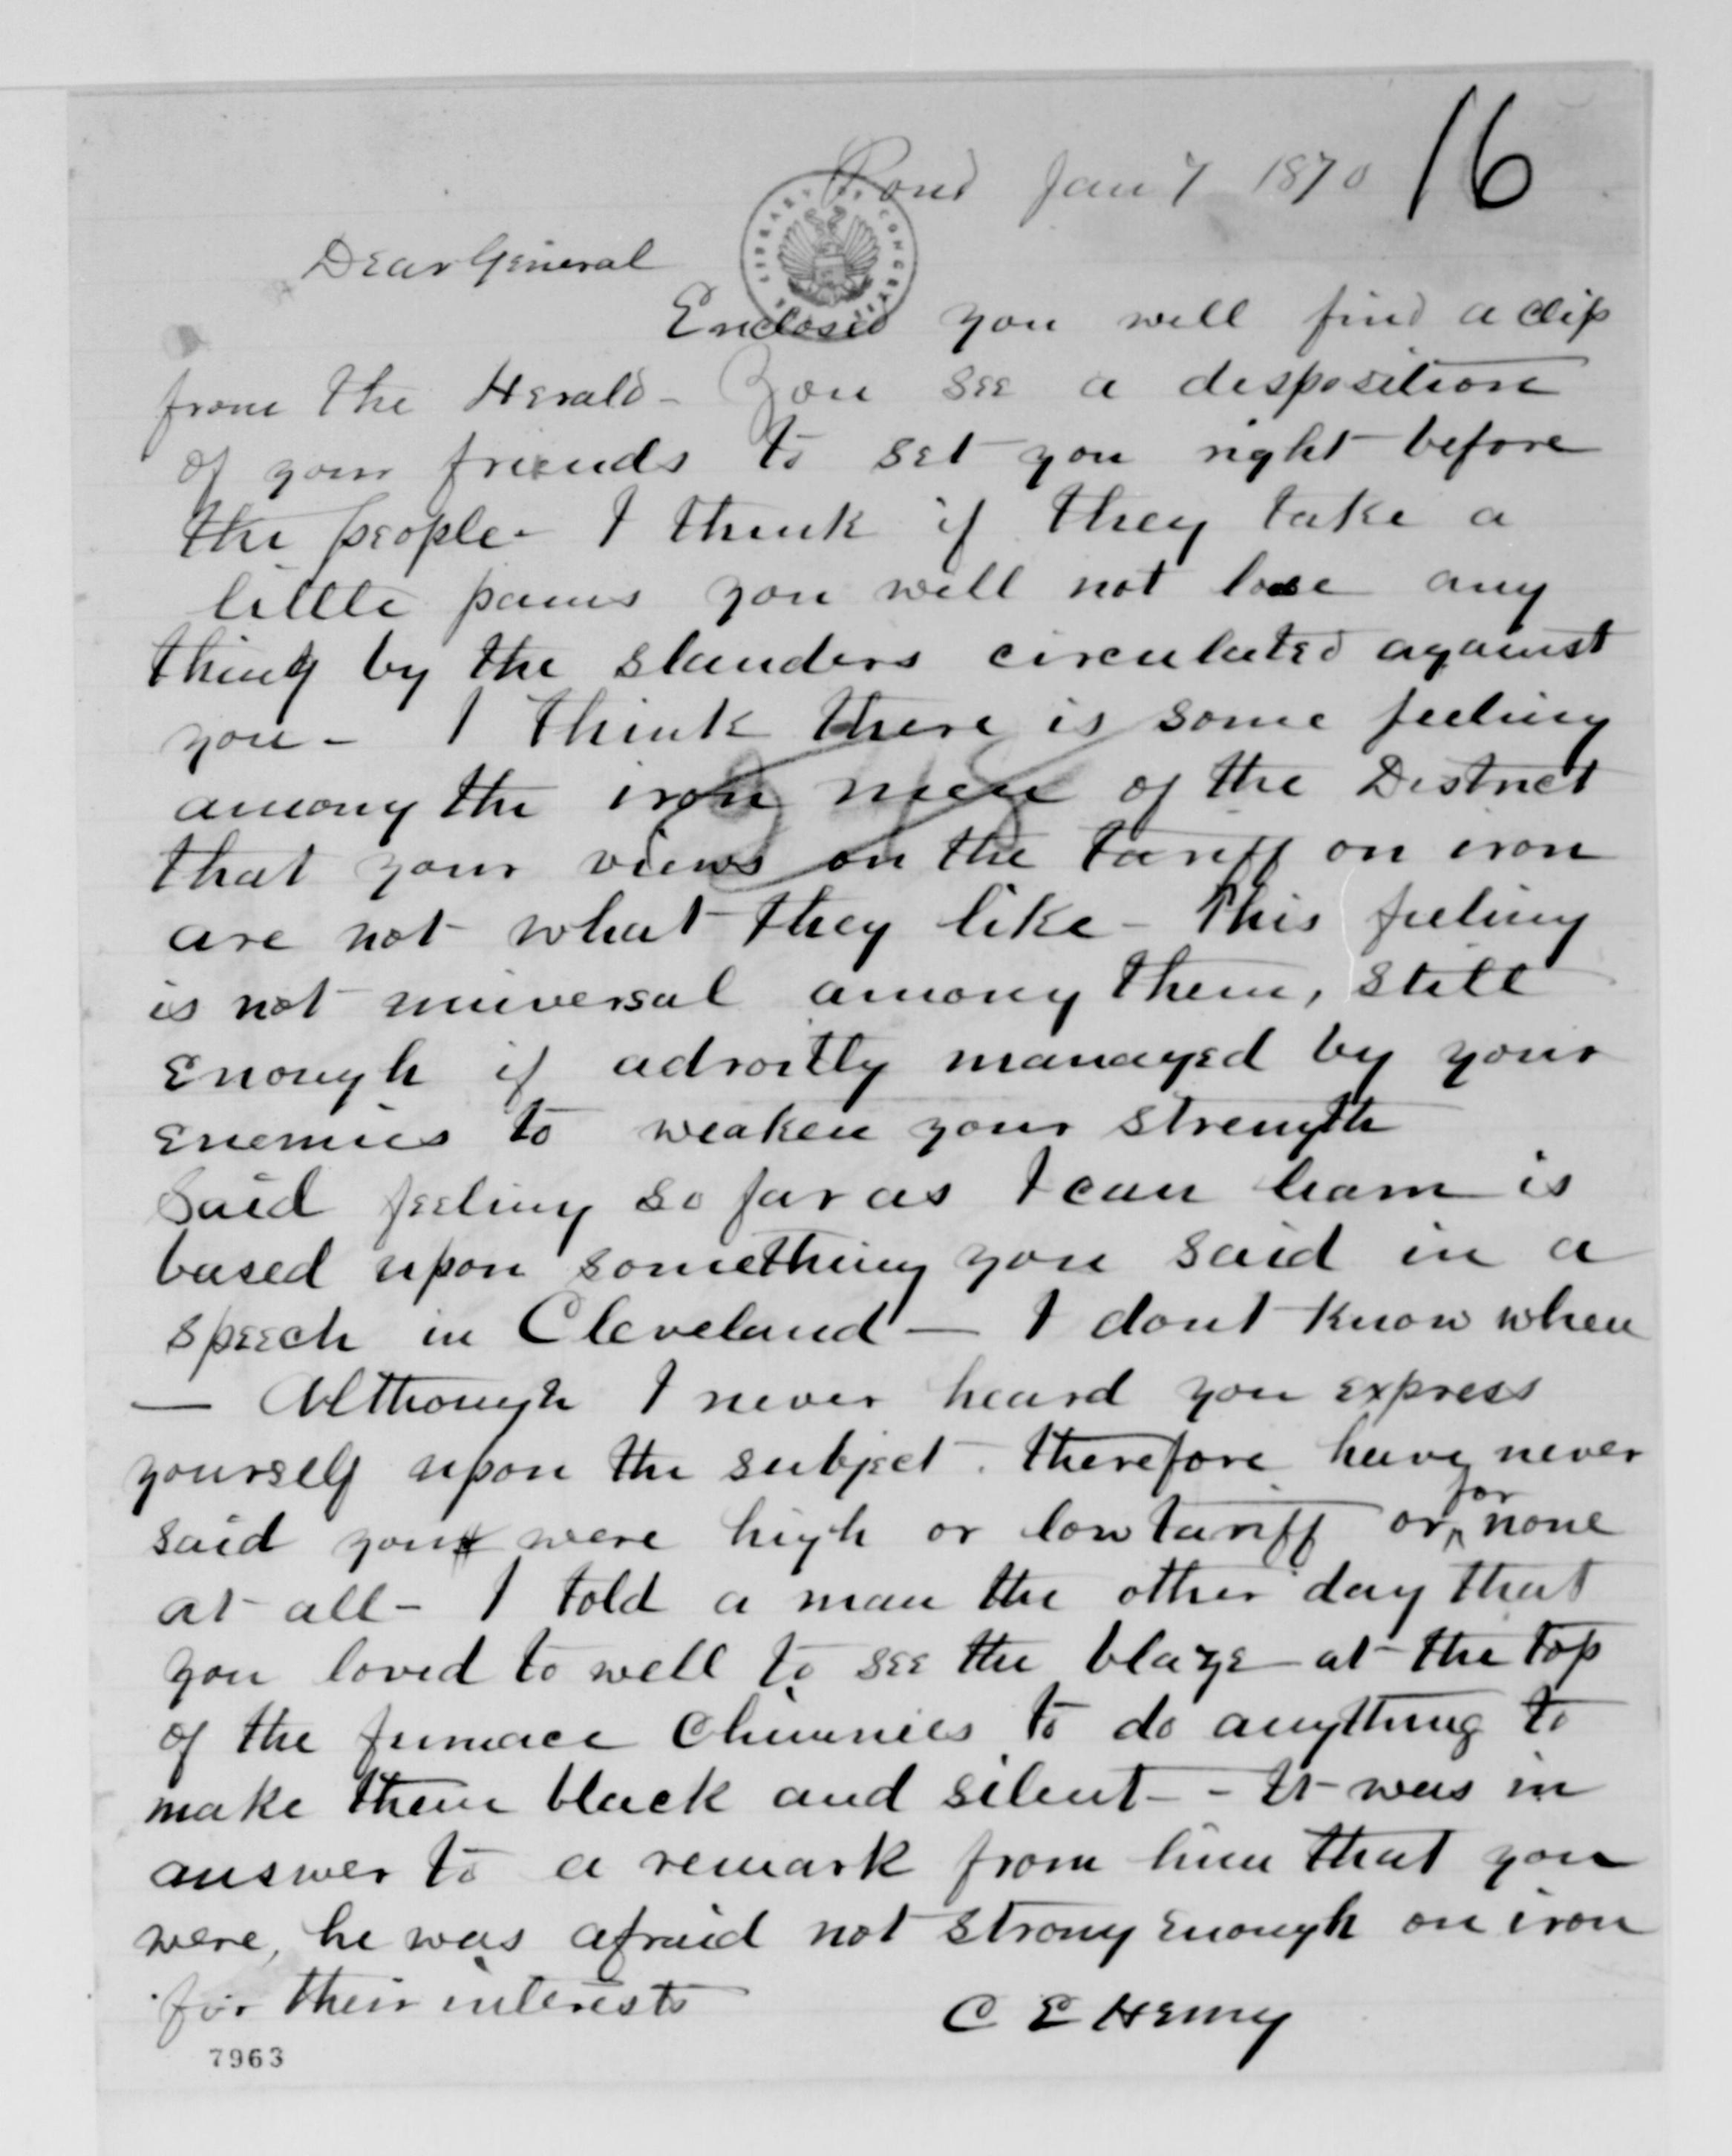 Pond Jan 7 1870 16
Dear General
Enclosed you will find a clip
from the Herald - You see a disposition
of your friends to set you right before
the people - I think if they take a
little pains you will not lose any
thing by the slanders circulated against
you - I think there is some feeling
among the iron men of the District
that your views on the tariff on iron
are not what they like - This feeling
is not universal among them, still
enough if adroitly managed by your
enemies to weaken your strength
Said feeling so far as I can learn is
based upon something you said in a
speech in Cleveland — I dont know when
— Although I never heard you express
yourself upon the subject. therefore have never
said you were high or low tariff or for none
at all - I told a man the other day that
you loved to well to see the blaze at the top
of the furnace chimnies to do anything to
make them black and silent - - It was in
answer to a remark from him that you
were, he was afraid not strong enough on iron
for their interests
C E Henry
7963
LIBRARY OF CONGRESS